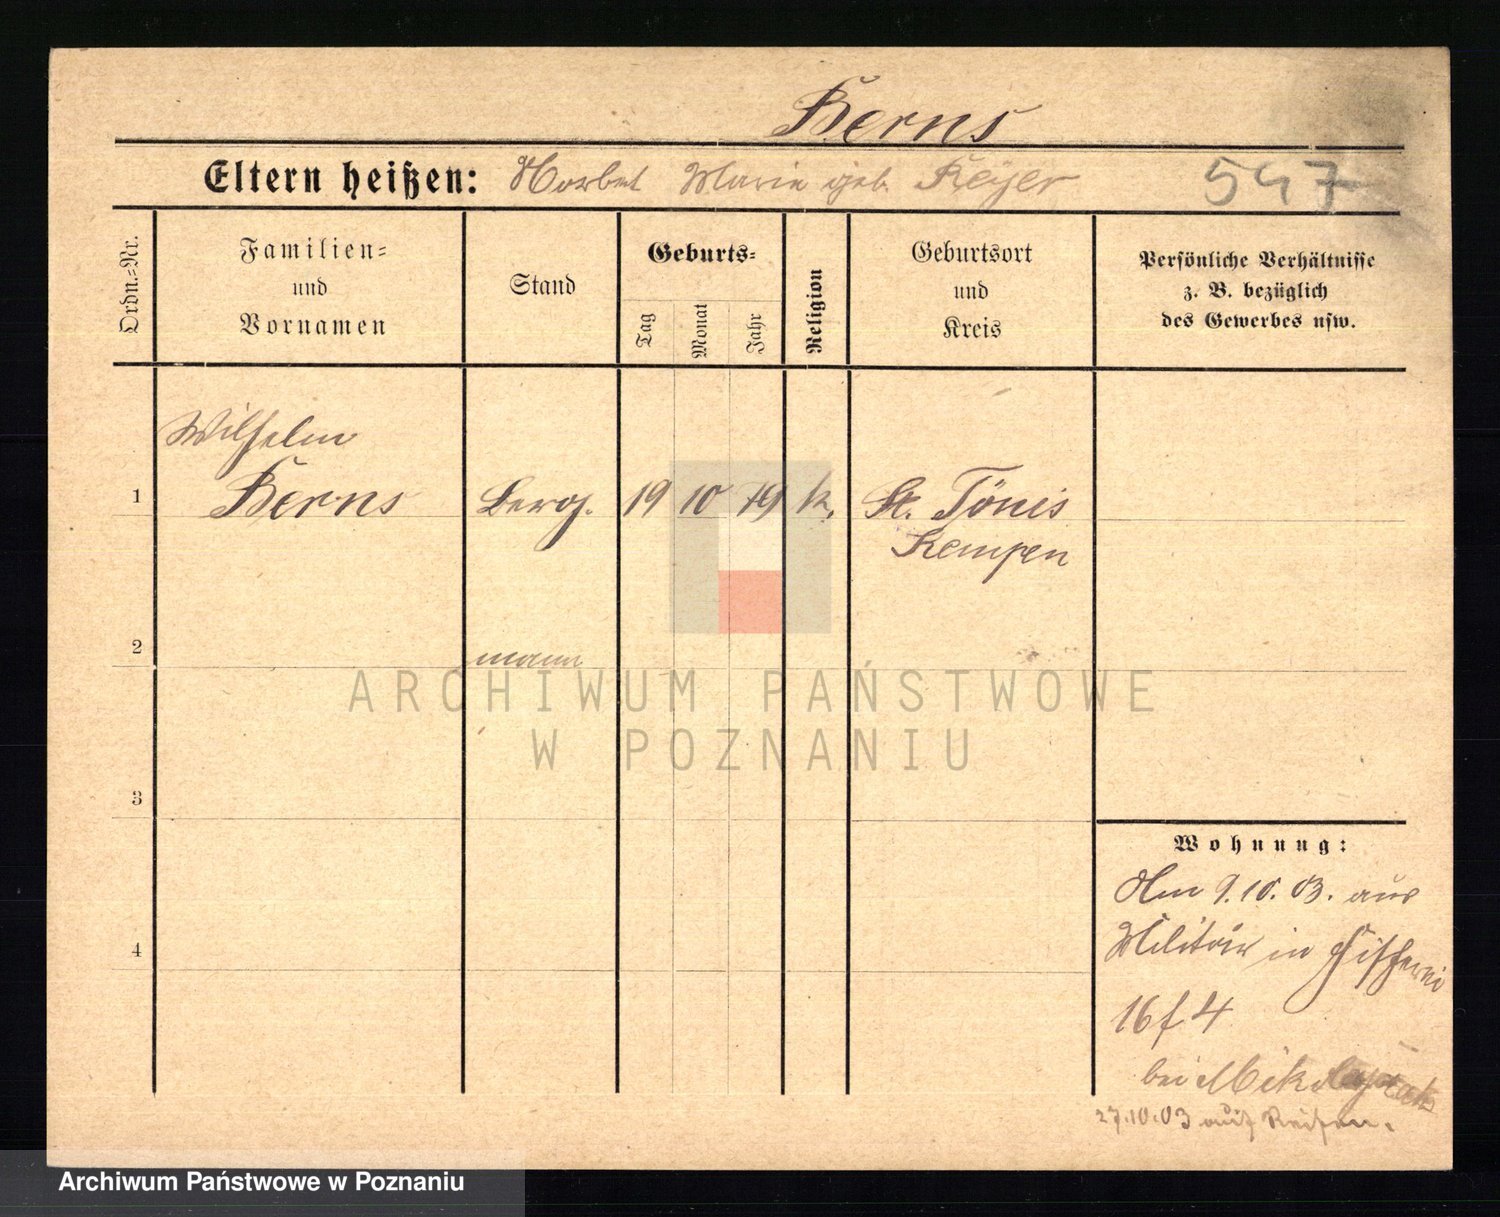 Berns
Eltern heißen: Norbert Marie geb. Keyser
547
Ordn.-Nr.
Familien-
und
Vornamen
Stand
Geburts-
Tag
Monat
Jahr
Religion
Geburtsort
und
Kreis
Persönliche Verhältnisse
z. B. bezüglich
des Gewerbes usw.
Wilhelm
1 Berns Berg. 19 10 79 k. St. Tönis
Kempen
2 mann
3
4
Wohnung:
Am 9.10.03. aus
Militär in Fischerei
16 f 4
bei Mikolajczak
27.10.03 auf Reisen.
ARCHIWUM PAŃSTWOWE
W POZNANIU
Archiwum Państwowe w Poznaniu